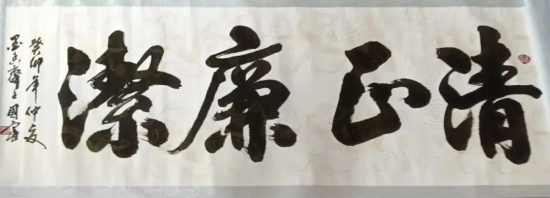 清正廉潔
癸卯年仲夏